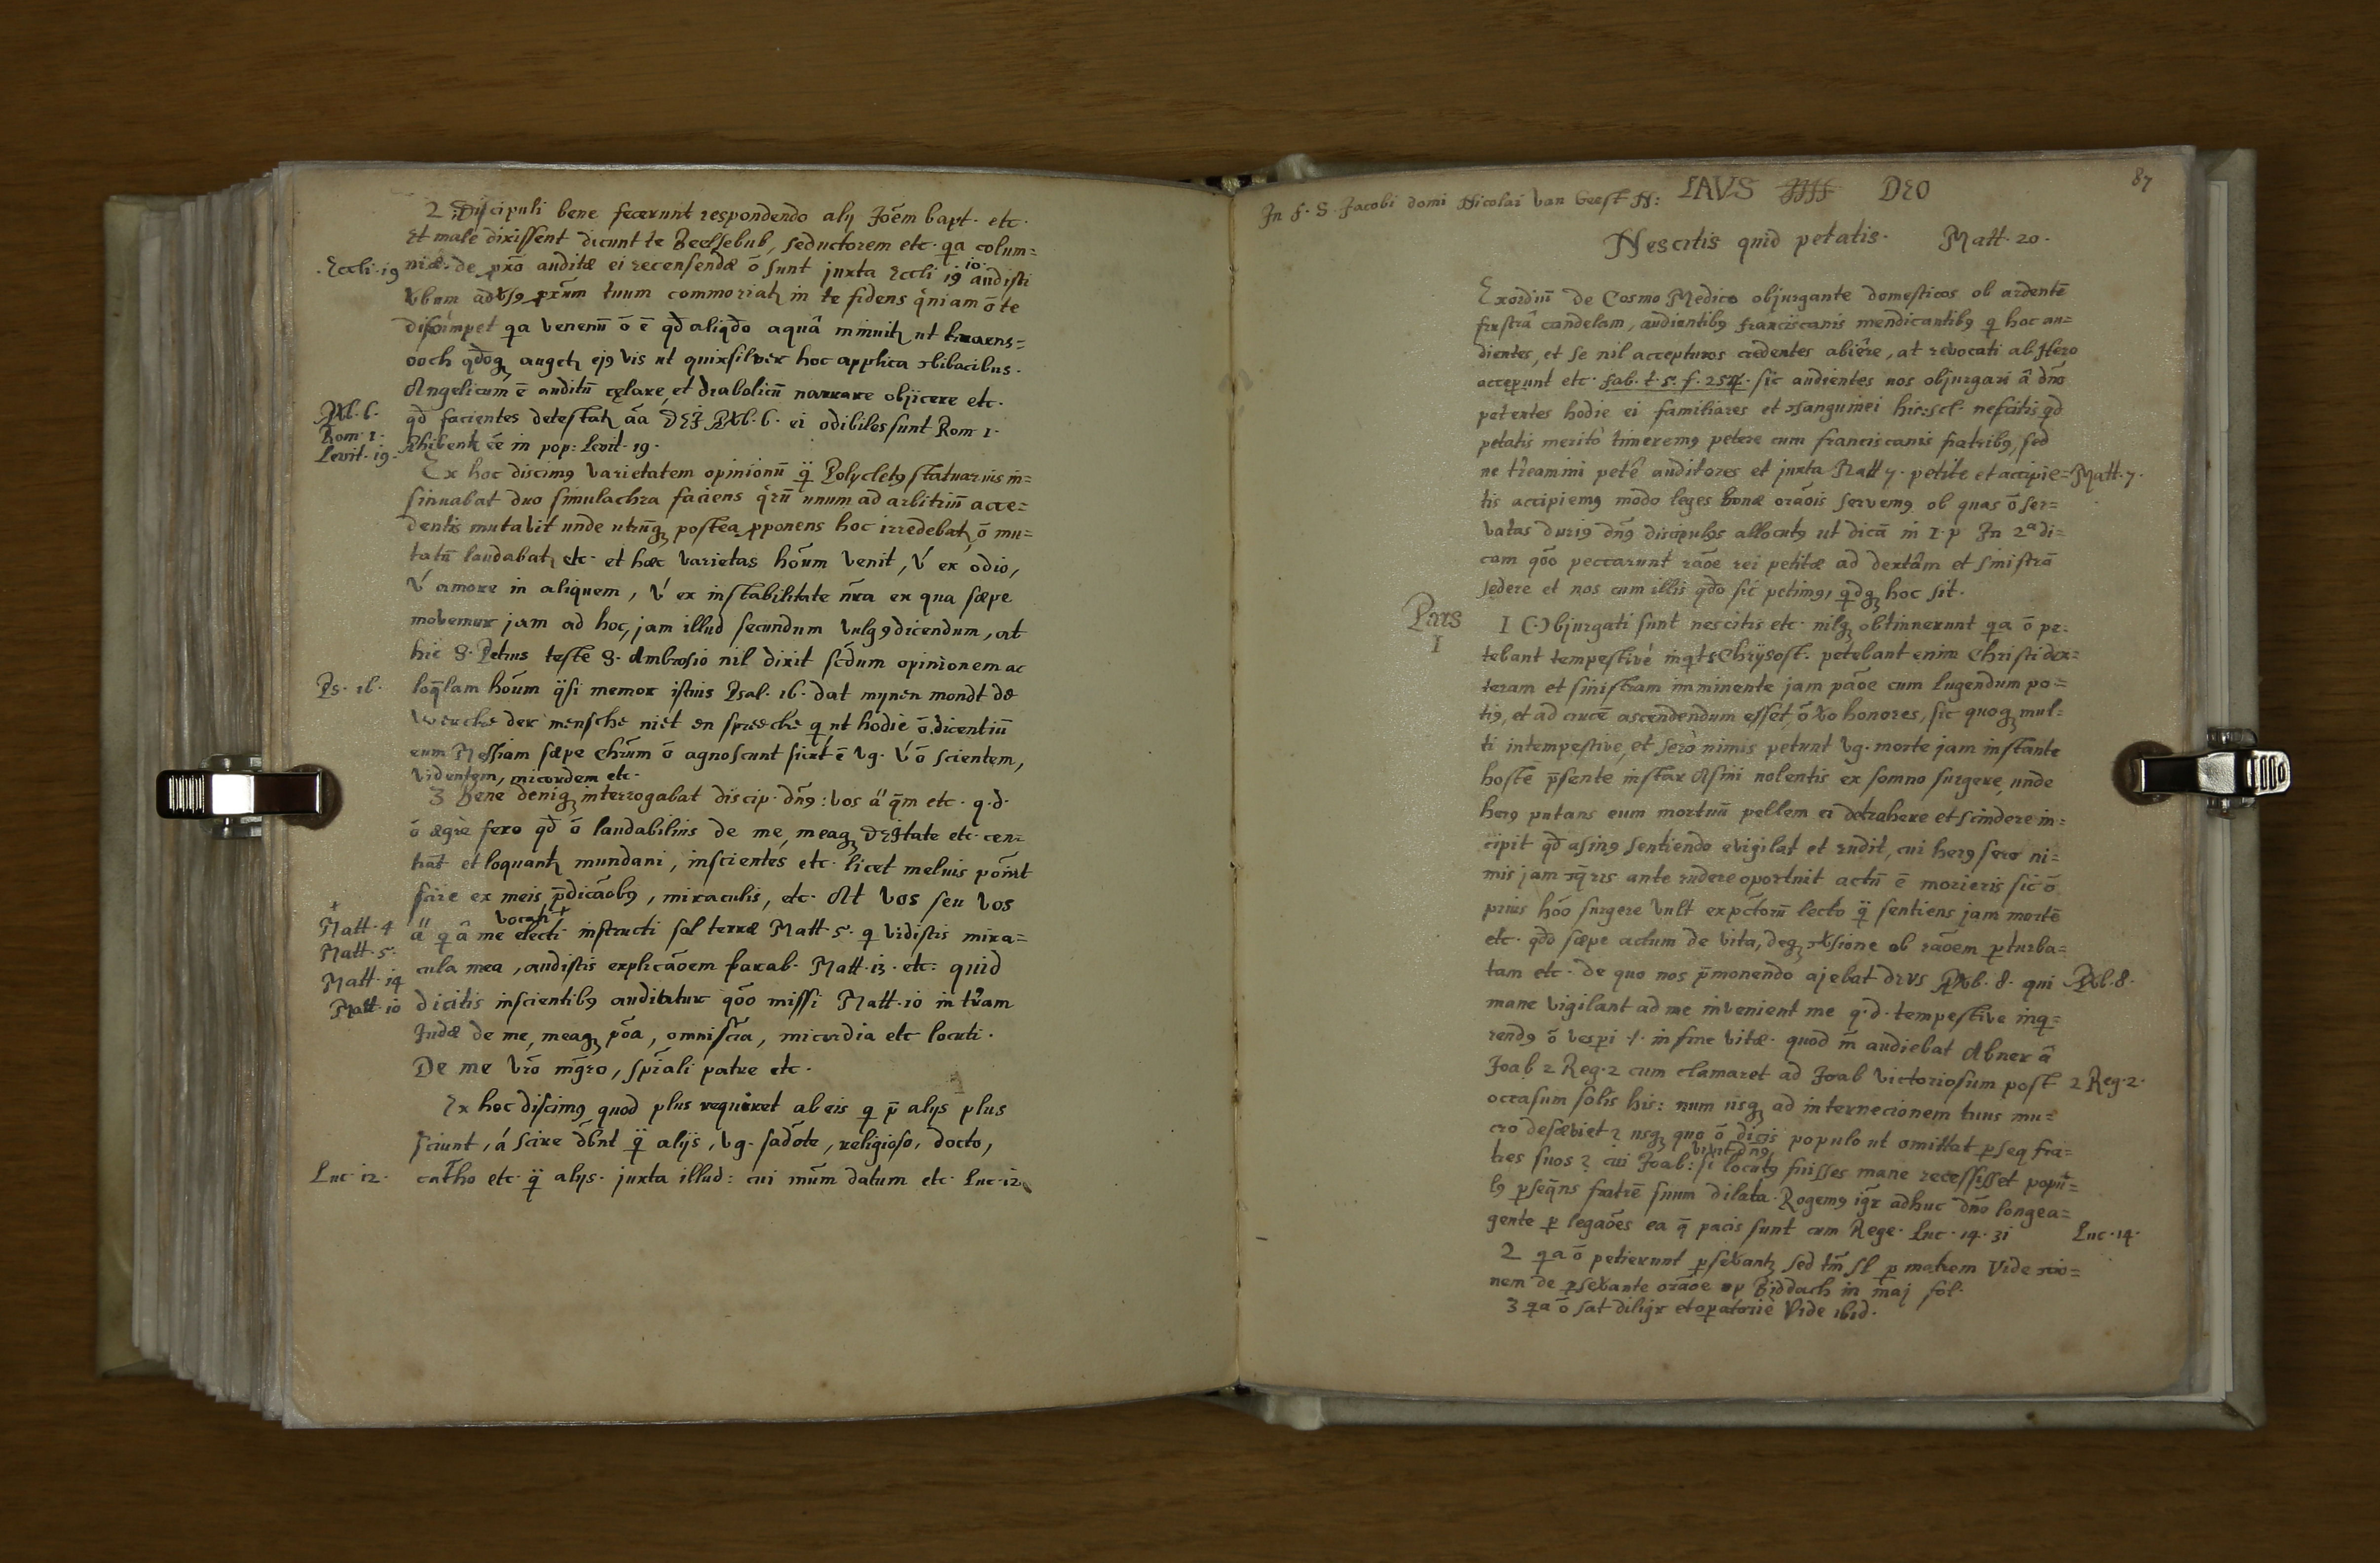 2 Discipuli bene fecerunt respondendo alij Joēm bapt. etc.
Et male dixissent dicunt te Beelsebub, seductorem etc. qa colum=
Eccli. 19
niæ de pxō auditæ ei recensendæ ō sunt juxta Eccli 19 10. audisti
tuum commoriatʒ in te fidens qniam ō te
qa venenū ō ē qd aliqdo aquâ minuitʒ ut
augetʒ ejꝰ vis ut quixsilver hoc applica
Angelicum ē auditū cęlare, et diabolicū narrare objicere etc.
6.
Rom. 1.
Levit. 19.
qd facientes detestatʒ āa DEI 6. ei odibiles sunt Rom. 1.
ēe in pop: Levit. 19.
Ex hoc discimꝰ varietatem opinionū q̄ Polycletꝰ statuarius in=
sinuabat duo simulachra faciens qrū unum ad arbitriū acce=
dentis mutavit unde utrūqʒ postea pponens hoc irredebatʒ ō mu=
tatū laudabatʒ etc. et hæc varietas hōum venit, v́ ex odio,
v́ amore in aliquem, v́ ex instabilitate nr̄a ex qua sæpe
movemur jam ad hoc, jam illud secundum vulgꝰ dicendum, at
hic S. Petrus teste S. Ambrosio nil dixit scd̄um opinionem ac
Ps. 16.
loq̄lam hōum q̄si memor istius Psal. 16. dat mynen mondt de
wercke der mensche niet en spreecke q ut hodie ō dicentiū
eum Messiam sæpe chr̄um ō agnoscunt sicut ē vg. v́ ō scientem,
videntem, micordem etc.
3 Bene deniqʒ interrogabat discip. dn̄ꝰ: vos ā q̄m etc. q.d.
ō ægrè fero qd̄ ō laudabilius de me, meaqʒ DEItate etc. cen=
et loquantʒ mundani, inscientes etc. licet melius
ex meis p̄dicāobꝰ, miraculis, etc. At vos seu vos
+
Matt. 4
Matt. 5.
Matt. 14
Matt. 10
vocati +
q â me electi instructi sal terræ Matt. 5. q vidistis mira=
cula mea, audistis explicāoem parab. Matt. 13. etc: quid
dicitis inscientibꝰ auditatur qōo missi Matt. 10 in tr̄am
Judæ de me, meaqʒ pōa, omniscīa, micordia etc locuti.
De me vr̄o mḡro, spīrali patre etc.
Ex hoc discimꝰ quod plus requiret ab eis q p̄ alijs plus
sciunt, á scire dbnt q̄ alijs, vg. sadōte, religioso, docto,
Luc. 12.
cath̄o etc. q̄ alijs. juxta illud: cui mūm datum etc. Luc. 12
87
In f. S. Jacobi domi Nicolai van Geest N: LAVS DEO
Nescitis quid petatis. Matt. 20.
Exordiū de Cosmo Medico objurgante domesticos ob ardentē
frustrâ candelam, audientibꝰ franciscanis mendicantibꝰ q hoc au=
dientes, et se nil accepturos credentes abiêre, at revocati ab Hero
acceperunt etc. fab. t. 5. f. 254. sic audientes nos objurgari â dn̄o
petentes hodie ei familiares et ɔsanguinei his: scl. nescitis qd
petatis meritò timeremꝰ petere cum franciscanis fratribꝰ, sed
ne petē auditores et juxta Matt 7. petite et accipie= Matt. 7.
tis accipiemꝰ modo leges bonæ orāois servemꝰ ob quas ō ser=
vatas duriꝰ dn̄ꝰ discipulos allocutꝰ ut dicā in 1. p In 2ᵃ di=
cam qōo peccarunt rāoe rei petitæ ad dextâm et sinistrā
sedere et nos cum illis qdo sic petimꝰ, qdqʒ hoc sit.
Pars
I
I Objurgati sunt nescitis etc. nilqʒ obtinuerunt qa ō pe=
tebant tempestivé inqt S Chrÿsost. petebant enim Christi dex=
teram et sinistram imminente jam pāoe cum lugendum po=
tiꝰ, et ad crucē ascendendum esset, ō vo honores, sic quoqʒ mul=
ti intempestive, et serò nimis petunt vg. morte jam instante
hoste p̄sente instar Asini nolentis ex somno surgere, unde
herꝰ putans eum mortuū pellem ei detrahere et scindere in=
cipit qd̄ asinꝰ sentiendo evigilat et rudit, cui herꝰ sero ni=
mis jam ante rudere oportuit actū ē morieris sic ō
prius hōo surgere vult ex pctōrū lecto q̄ sentiens jam mortē
etc. qdo sæpe actum de vita, deqʒ ɔvsione ob rāoem pturba=
tam etc. de quo nos p̄monendo ajebat DEVS 8. qui 8.
mane vigilant ad me invenient me q.d. tempestive inq=
rendꝰ ō vesperi .i. in fine vitæ. quod m̄ audiebat Abner â
Joab 2 Reg. 2 cum clamaret ad Joab victoriosum post 2 Reg. 2.
occasum solis his: num usqʒ ad internecionem tuus mu=
cro desæviet? usqʒ quo ō dicis populo ut omittat pseq fra=
vivit dn̄ꝰ
tres suos? cui Joab: si locutꝰ fuisses mane recessisset popu=
lꝰ pseq̄ns fratrē suum dilata. Rogemꝰ igr adhuc dn̄o longe a=
gente p legaōes ea q̄ pacis sunt cum Rege. Luc. 14. 31 Luc. 14.
2 qa ō petierunt psevantʒ sed tm̄ sl p matrem Vide
nem de psevante orāoe Biddach in maj fol.
3 qa ō sat diligr et operatoriè Vide ibid.